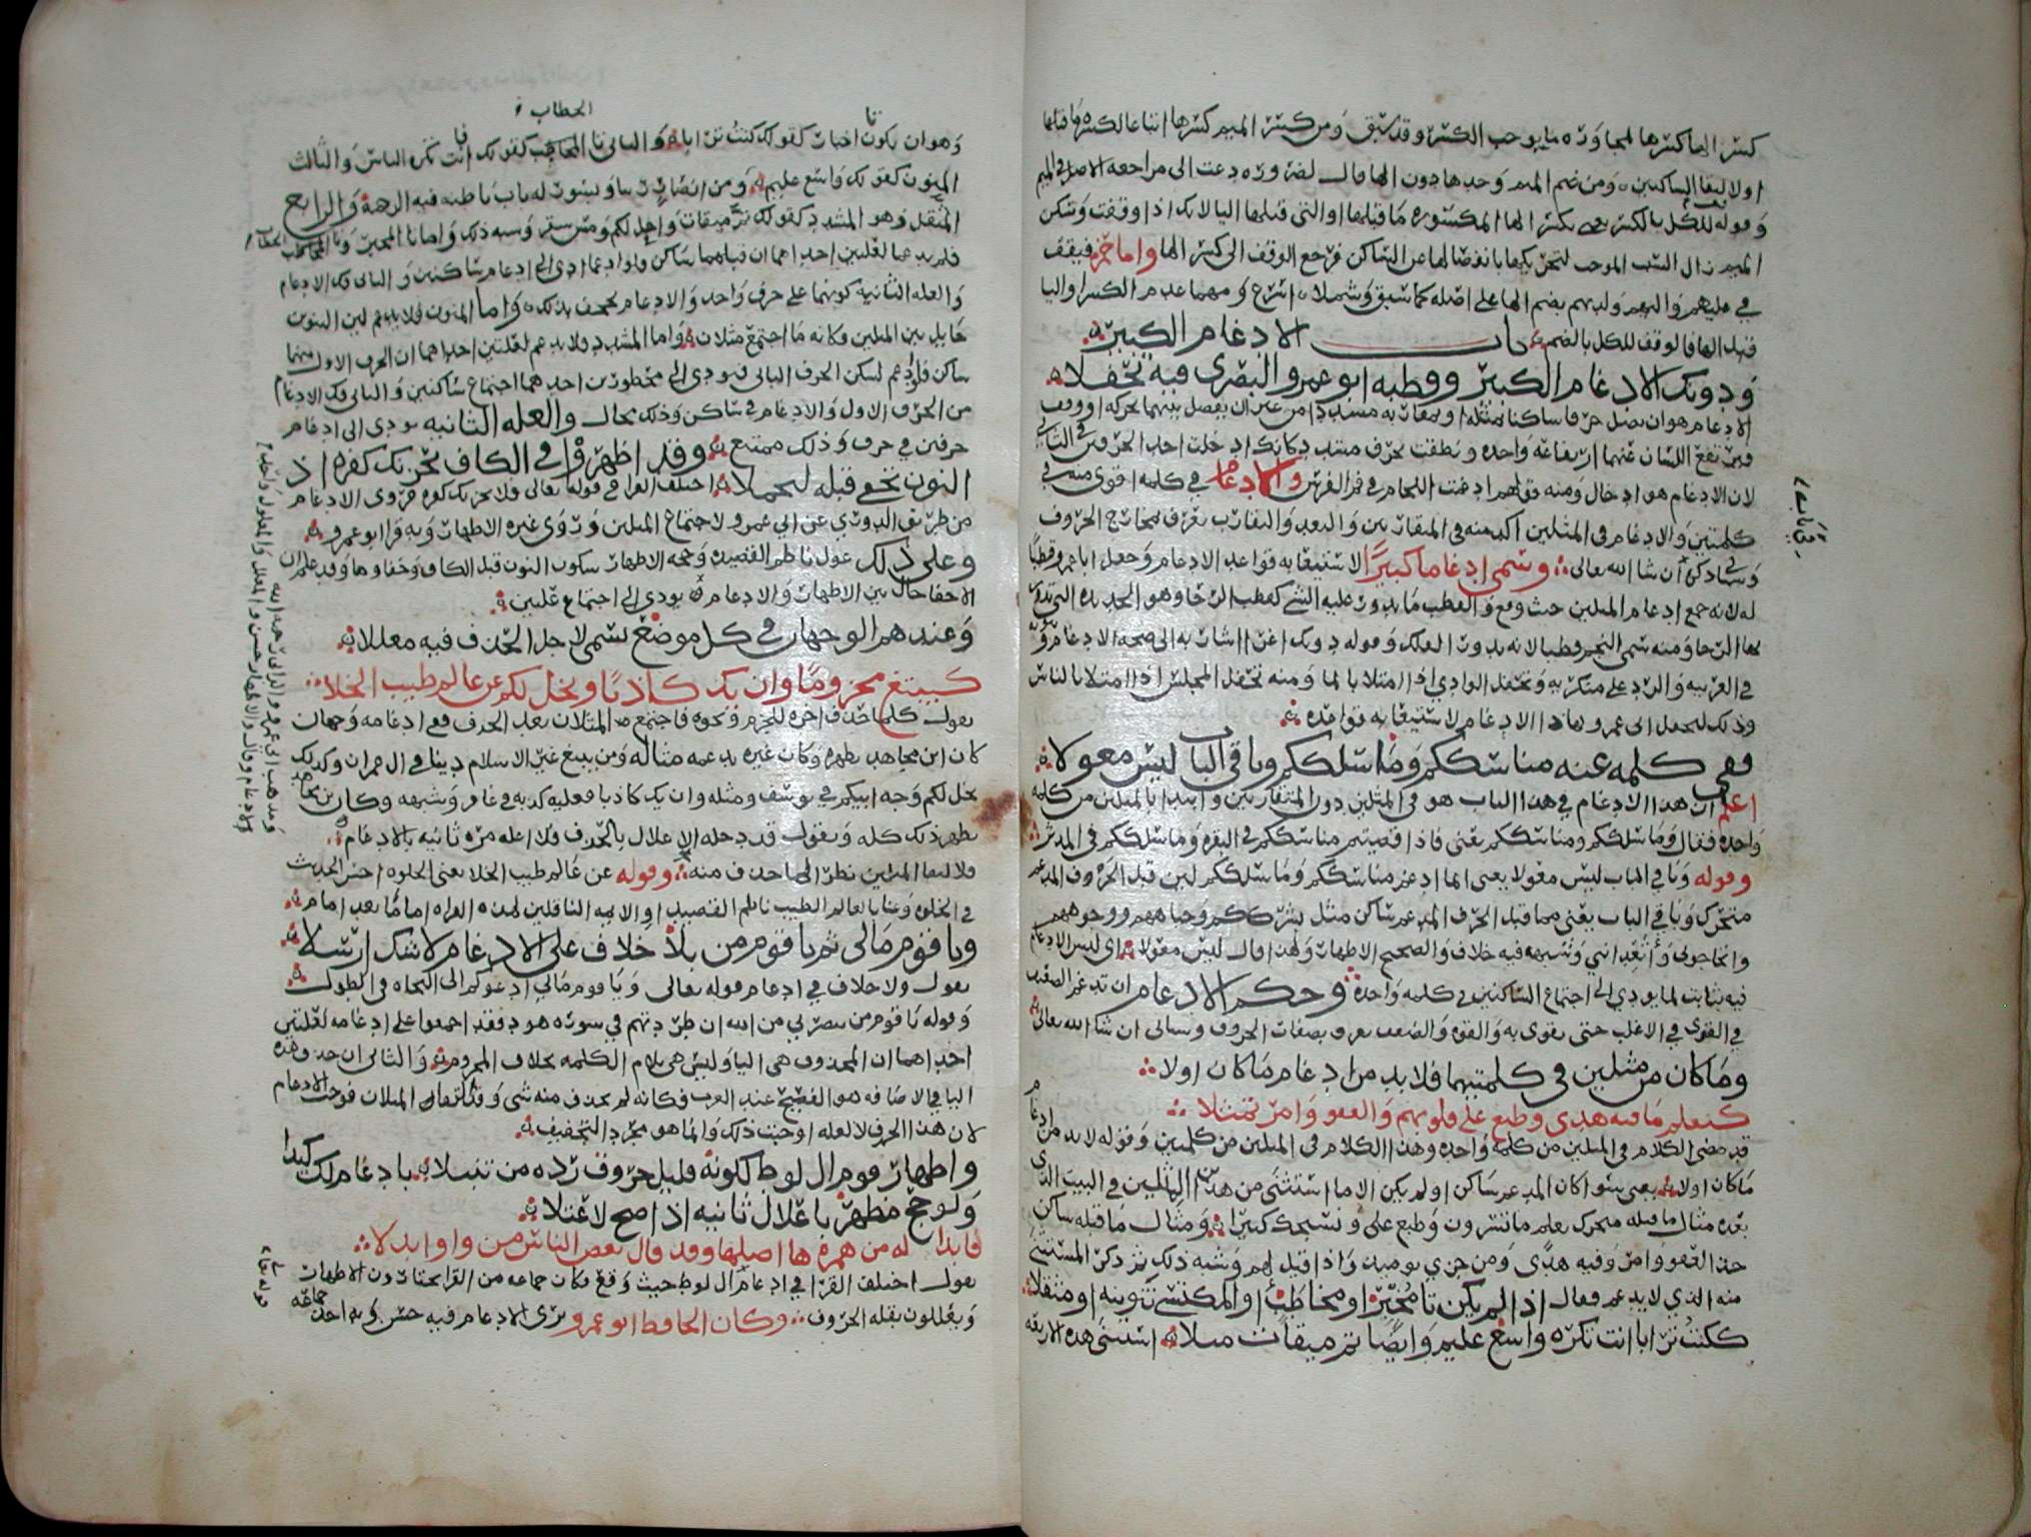 كسر الها كسرها لمجاورة ما يوجب الكسر وقد سبق ومن كسر الميم كسرها اتباعا لكسرة ما قبلها
اولالتقا الساكنين ومن ضم الميم وحدها دون الها قال لضرورة دعت الى مراجعة الاصل في الميم
وقوله للكل بالكسر يعني بكسر الها المكسورة ما قبلها او التي قبلها اليا لانك اذا وقفت وتسكن
الميم زال السبب الموجب لتحريكها بانفصالها عن الساكن فرجع الوقف الى كسر الها واما حمزه فيقف
في عليهم واليهم ولديهم بضم الها على اصله كما سبق وشملا اسرع ومهما عدم الكسر او اليا
قبل الها فالوقف للكل بالضم باب الادغام الكبير
ودونك الادغام الكبير وقطبه ابو عمرو البصري فيه تحفلا
الادغام هو ان تصل حرفا ساكنا بمثله او مقاربه مشددا من غير ان يفصل بينهما بحركة او وقف
فيرتفع اللسان عنهما ارتفاعة واحده ونطقت بحرف مشدد كانك ادخلت احد الحرفين في الثاني
لان الادغام هو ادخال ومنه قولهم ادغمت اللجام في فم الفرس والادغام في كلمه اقوى منه في
كلمتين والادغام في المثلين اكد منه في المتقاربين والبعد والتقارب يعرف بمخارج الحروف
وسياتي ذكره ان شا الله تعالى وسمي ادغاما كبيرا لاستيفا به قواعد الادغام وجعل ابا عمرو قطبا
له لانه جمع ادغام المثلين حيث وقع والقطب ما يدور عليه الشي كقطب الرحا وهو الحديده التي تدور
بها الرحا ومنه سمي النجم قطبا لانه يدور الفلك وقوله دونك اغرا اشار به الى صحة الادغام وقوته
في العربيه والرد على منكريه وتحفل الوادي اذا امتلا بالما ومنه تحفل المجلس اذا امتلا بالناس
وذلك لتحفل ابي عمرو بهاذا الادغام لاستيفا به قواعده
ففي كلمه عنه مناسككم وما سلككم وباقي الباب ليس معولا
اعلم ان هذا الادغام في هذا الباب هو في المثلين دون المتقاربين وابتدا بالمثلين من كلمه
واحده فقال وما سلككم ومناسككم يعني فاذا قضيتم مناسككم في البقره وما سلككم في المدثر
وقوله وباقي الباب ليس معولا يعني انما ادغم مناسككم وما سلككم لين قبل الحرف المدغم
متحرك وباقي الباب يعني مما قبل الحرف المدغم ساكن مثل بشرككم وجباههم ووجوههم
واتحاجوني واتعدانني وشبهه فيه خلاف والصحيح الاظهار ولهذا قال ليس معولا اي ليس الادغام
فيه بثابت لما يودي الى اجتماع الساكنين في كلمه واحدة وحكم الادغام ان تدغم الضعيف
في القوي في الاغلب حتى يقوى به والقوه والضعف يعرف بصفات الحروف وسياتي ان شا الله تعالى
وما كان من مثلين في كلمتيهما فلا بد من ادغام ما كان اولا
كيعلم ما فيه هدى وطبع على قلوبهم والعفو وامر تمثلا
قد مضى الكلام في المثلين من كلمه واحده وهذا الكلام في المثلين من كلمتين وقوله لا بد من ادغام
ما كان اولا يعني سوا كان المدغم ساكن او لم يكن الا ما استثنى من هذين المثلين في البيت الذي
بعده مثال ما قبله متحرك يعلم ما تسرون وطبع على ونسبحك كثيرا ومثال ما قبله ساكن
خذ العفو وامر وفيه هدى ومن خزي يوميذ واذا قيل لهم وشبه ذلك ثم ذكر المستثنى
منه الذي لا يدغم فقال اذا لم يكن تا مخبر او مخاطب او المكتسي تنوينه او مثقلا
ككنت ترابا انت تكره واسع عليم وايضا تم ميقات مثلا استثنى هذه الاربعه
تا
الخطاب
وهو ان يكون اخبار كقولك كنت ترابا والثاني تا المخاطب كقولك انت تكره الناس والثالث
المنون كقولك واسع عليم ومن انصار ربنا وبسور له باب باطنه فيه الرحمة والرابع
المثقل وهو المشدد كقولك تم ميقات واحل لكم ومس سقر وشبه ذلك واما تا المخبر وتا المخاطب
فلم يدغما لعلتين احداهما ان قبلهما ساكن ولو ادغما ادى الى ادغام ساكنين والثاني فك الادغام
والعله الثانية كونهما على حرف واحد والادغام يجحف بذلك واما المنون فلا يدغم لين التنوين
حايل بين المثلين وكانه ما اجتمع مثلان واما المشدد فلا يدغم لعلتين احداهما ان الحرف الاول منهما
ساكن فلو ادغم لسكن الحرف الثاني فيودي الى محظورين احدهما اجتماع ساكنين والثاني فك الادغام
من الحرف الاول والادغام في ساكن وذلك محال والعله الثانيه يودي الى ادغام
حرفين في حرف وذلك ممتنع وقد اظهروا في الكاف يحزنك كفره اذ
النون تخفى قبله لتجملا اختلف القرا في قوله تعالى فلا يحزنك كفره فروى الادغام
من طريق الدوري عن ابي عمرو لاجتماع المثلين وروى غيره الاظهار وبه قرا ابو عمرو
وعلى ذلك عول ناظم القصيدة وحجة الاظهار سكون النون قبل الكاف وخفاوها وقد علم ان
الاخفا حال بين الاظهار والادغام يودي الى اجتماع علتين
وعندهم الوجهان في كل موضع تسمى لاجل الحذف فيه معللا
كيبتغ مجزوما وان يك كاذبا ويخل لكم عن عالم طيب الخلا
يقول كلما حذف اخره للجزم ونحوه فاجتمع المثلان بعد الحذف ففي ادغامه وجهان
كان ابن مجاهد يظهره وكان غيره يدغمه مثاله ومن يبتغ غير الاسلام دينا في ال عمران وكذلك
يخل لكم وجه ابيكم في يوسف ومثله وان يك كاذبا فعليه كذبه في غافر وشبهه وكان بن مجاهد
يظهر ذلك كله ويقول قد دخله الاعلال بالحذف فلا اعله مره ثانيه بالادغام
فلا لتقا المثلين نظر الى ما حذف منه وقوله عن عالم طيب الخلا يعني الخلوه احسن الحديث
في الخلوه وعنا بالعالم الطيب ناظم القصيد او الايمه الناقلين لهذه القراه اماما بعد امام
ويا قوم مالي ثم يا قوم من بلا خلاف على الادغام لا شك ارسلا
يقول ولا خلاف في ادغام قوله تعالى ويا قوم مالي ادعوكم الى النجاه في الطول
وقوله يا قوم من ينصرني من الله ان طردتهم في سوره هود فقد اجمعوا على ادغامه لعلتين
احداهما ان المحذوف هي اليا وليس هي بلام الكلمه بخلاف المجزوم والثاني ان حذف هذه
اليا في الاضافه هو الفصيح عند العرب فكانه لم يحذف منه شي وقد التقا المثلان فوجب الادغام
لان هذا الحرف لا لعله اوجبت ذلك وانما هو مجرد التخفيف
واظهار قوم ال لوط لكونه قليل حروف رده من تنبلا بادغام لك كيدا
ولو حج مظهر باعلال ثانيه اذا صح لاعتلا
فابداله من همزة ها اصلها وقد قال بعض الناس من واو ابدلا
يقول اختلف القرا في ادغام ال لوط حيث وقع فكان جماعه من القرا يختارون الاظهار
ويعللون بقله الحروف وكان الحافظ ابو عمرو يرى الادغام فيه حسن
ومذهب ابي عمرو الداني رحمه الله